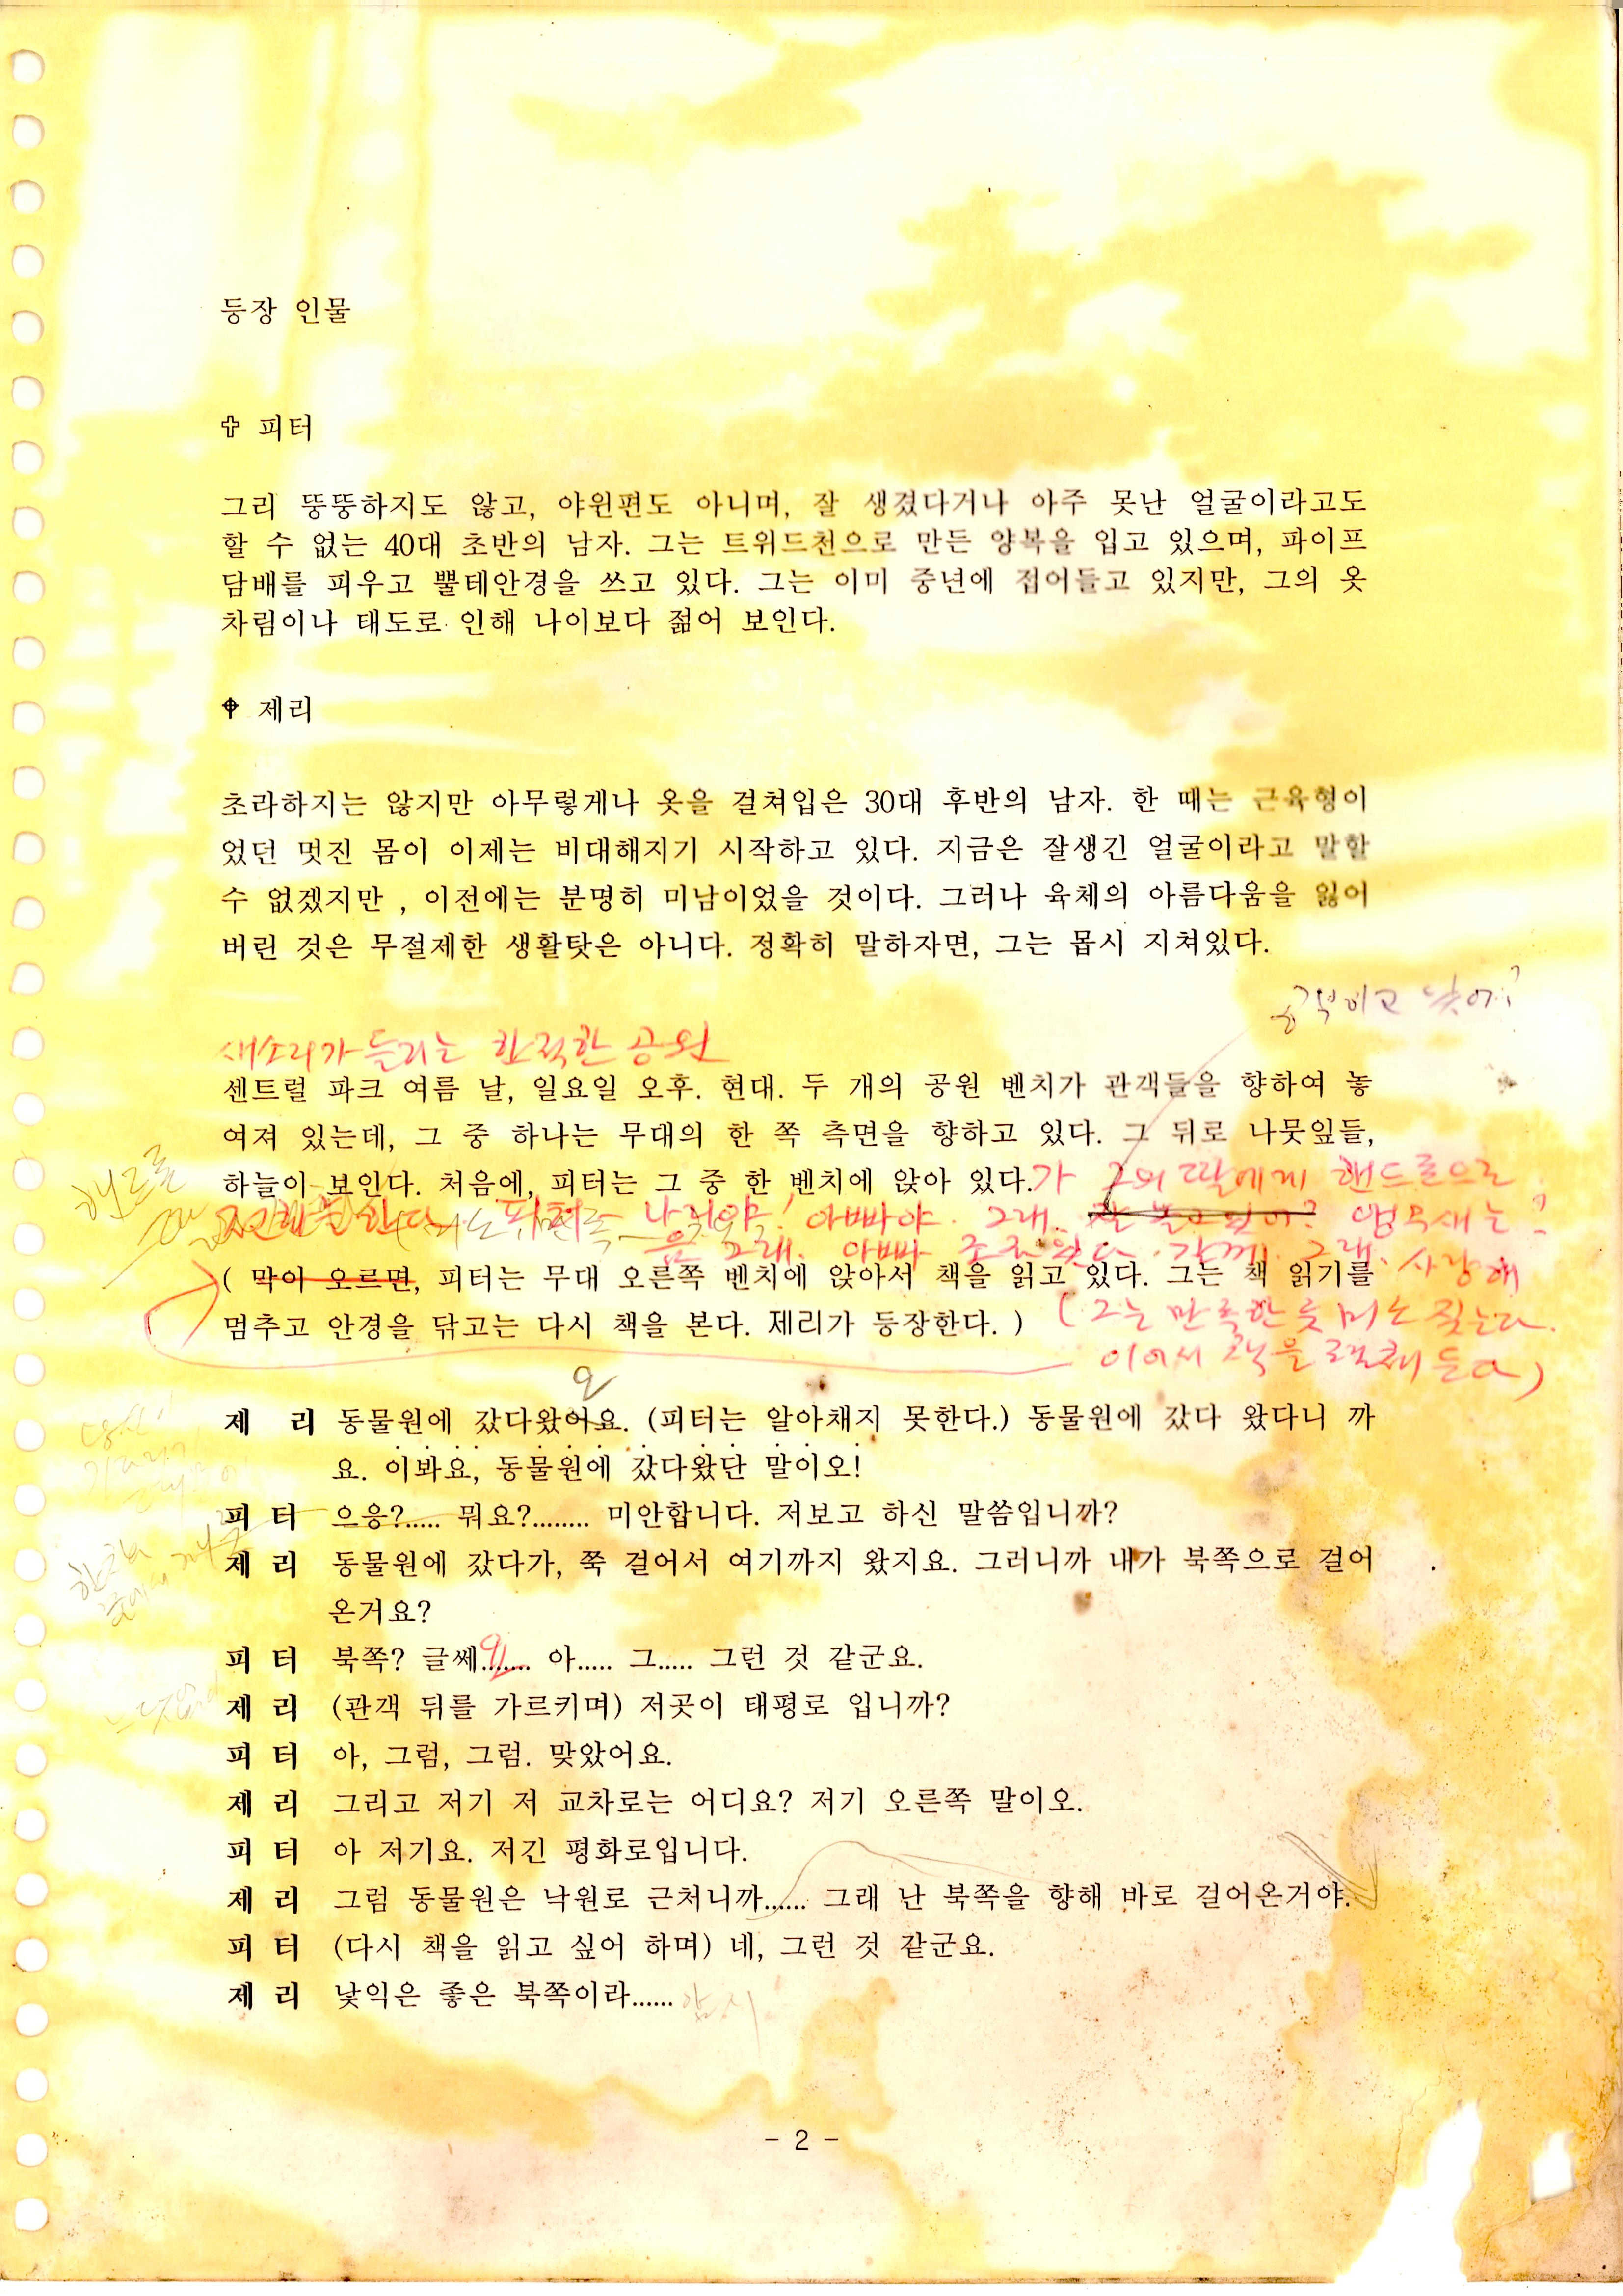 등장 인물
✞ 피터
그리 뚱뚱하지도 않고, 야윈편도 아니며, 잘 생겼다거나 아주 못난 얼굴이라고도
할 수 없는 40대 초반의 남자. 그는 트위드천으로 만든 양복을 입고 있으며, 파이프
담배를 피우고 뿔테안경을 쓰고 있다. 그는 이미 중년에 접어들고 있지만, 그의 옷
차림이나 태도로 인해 나이보다 젊어 보인다.
제리
초라하지는 않지만 아무렇게나 옷을 걸쳐입은 30대 후반의 남자. 한 때는 근육형이
었던 멋진 몸이 이제는 비대해지기 시작하고 있다. 지금은 잘생긴 얼굴이라고 말할
수 없겠지만 , 이전에는 분명히 미남이었을 것이다. 그러나 육체의 아름다움을 잃어
버린 것은 무절제한 생활탓은 아니다. 정확히 말하자면, 그는 몹시 지쳐있다.
새소리가 들리는 한적한 공원
센트럴 파크 여름 날, 일요일 오후. 현대. 두 개의 공원 벤치가 관객들을 향하여 놓
여져 있는데, 그 중 하나는 무대의 한 쪽 측면을 향하고 있다. 그 뒤로 나뭇잎들,
하늘이 보인다. 처음에, 피터는 그 중 한 벤치에 앉아 있다.가 그의 딸에게 핸드폰으로
한다 나리야! 아빠야. 그래. 앵무새는?
응 그래. 아빠 갈께. 그래. 사랑해
( 막이 오르면, 피터는 무대 오른쪽 벤치에 앉아서 책을 읽고 있다. 그는 책 읽기를
멈추고 안경을 닦고는 다시 책을 본다. 제리가 등장한다. ) (그는 만족한 듯 미소 짓는다.
이어서 책을 든다)
오
제 리 동물원에 갔다왔어요. (피터는 알아채지 못한다.) 동물원에 갔다 왔다니 까
요. 이봐요, 동물원에 갔다왔단 말이오!
피 터 으응?..... 뭐요?........ 미안합니다. 저보고 하신 말씀입니까?
제 리 동물원에 갔다가, 쭉 걸어서 여기까지 왔지요. 그러니까 내가 북쪽으로 걸어
온거요?
피 터 북쪽? 글쎄....... 아..... 그..... 그런 것 같군요.
제 리 (관객 뒤를 가르키며) 저곳이 태평로 입니까?
피 터 아, 그럼, 그럼. 맞았어요.
제 리 그리고 저기 저 교차로는 어디요? 저기 오른쪽 말이오.
피 터 아 저기요. 저긴 평화로입니다.
제 리 그럼 동물원은 낙원로 근처니까...... 그래 난 북쪽을 향해 바로 걸어온거야.
피 터 (다시 책을 읽고 싶어 하며) 네, 그런 것 같군요.
제 리 낯익은 좋은 북쪽이라...... 잠시
- 2 -